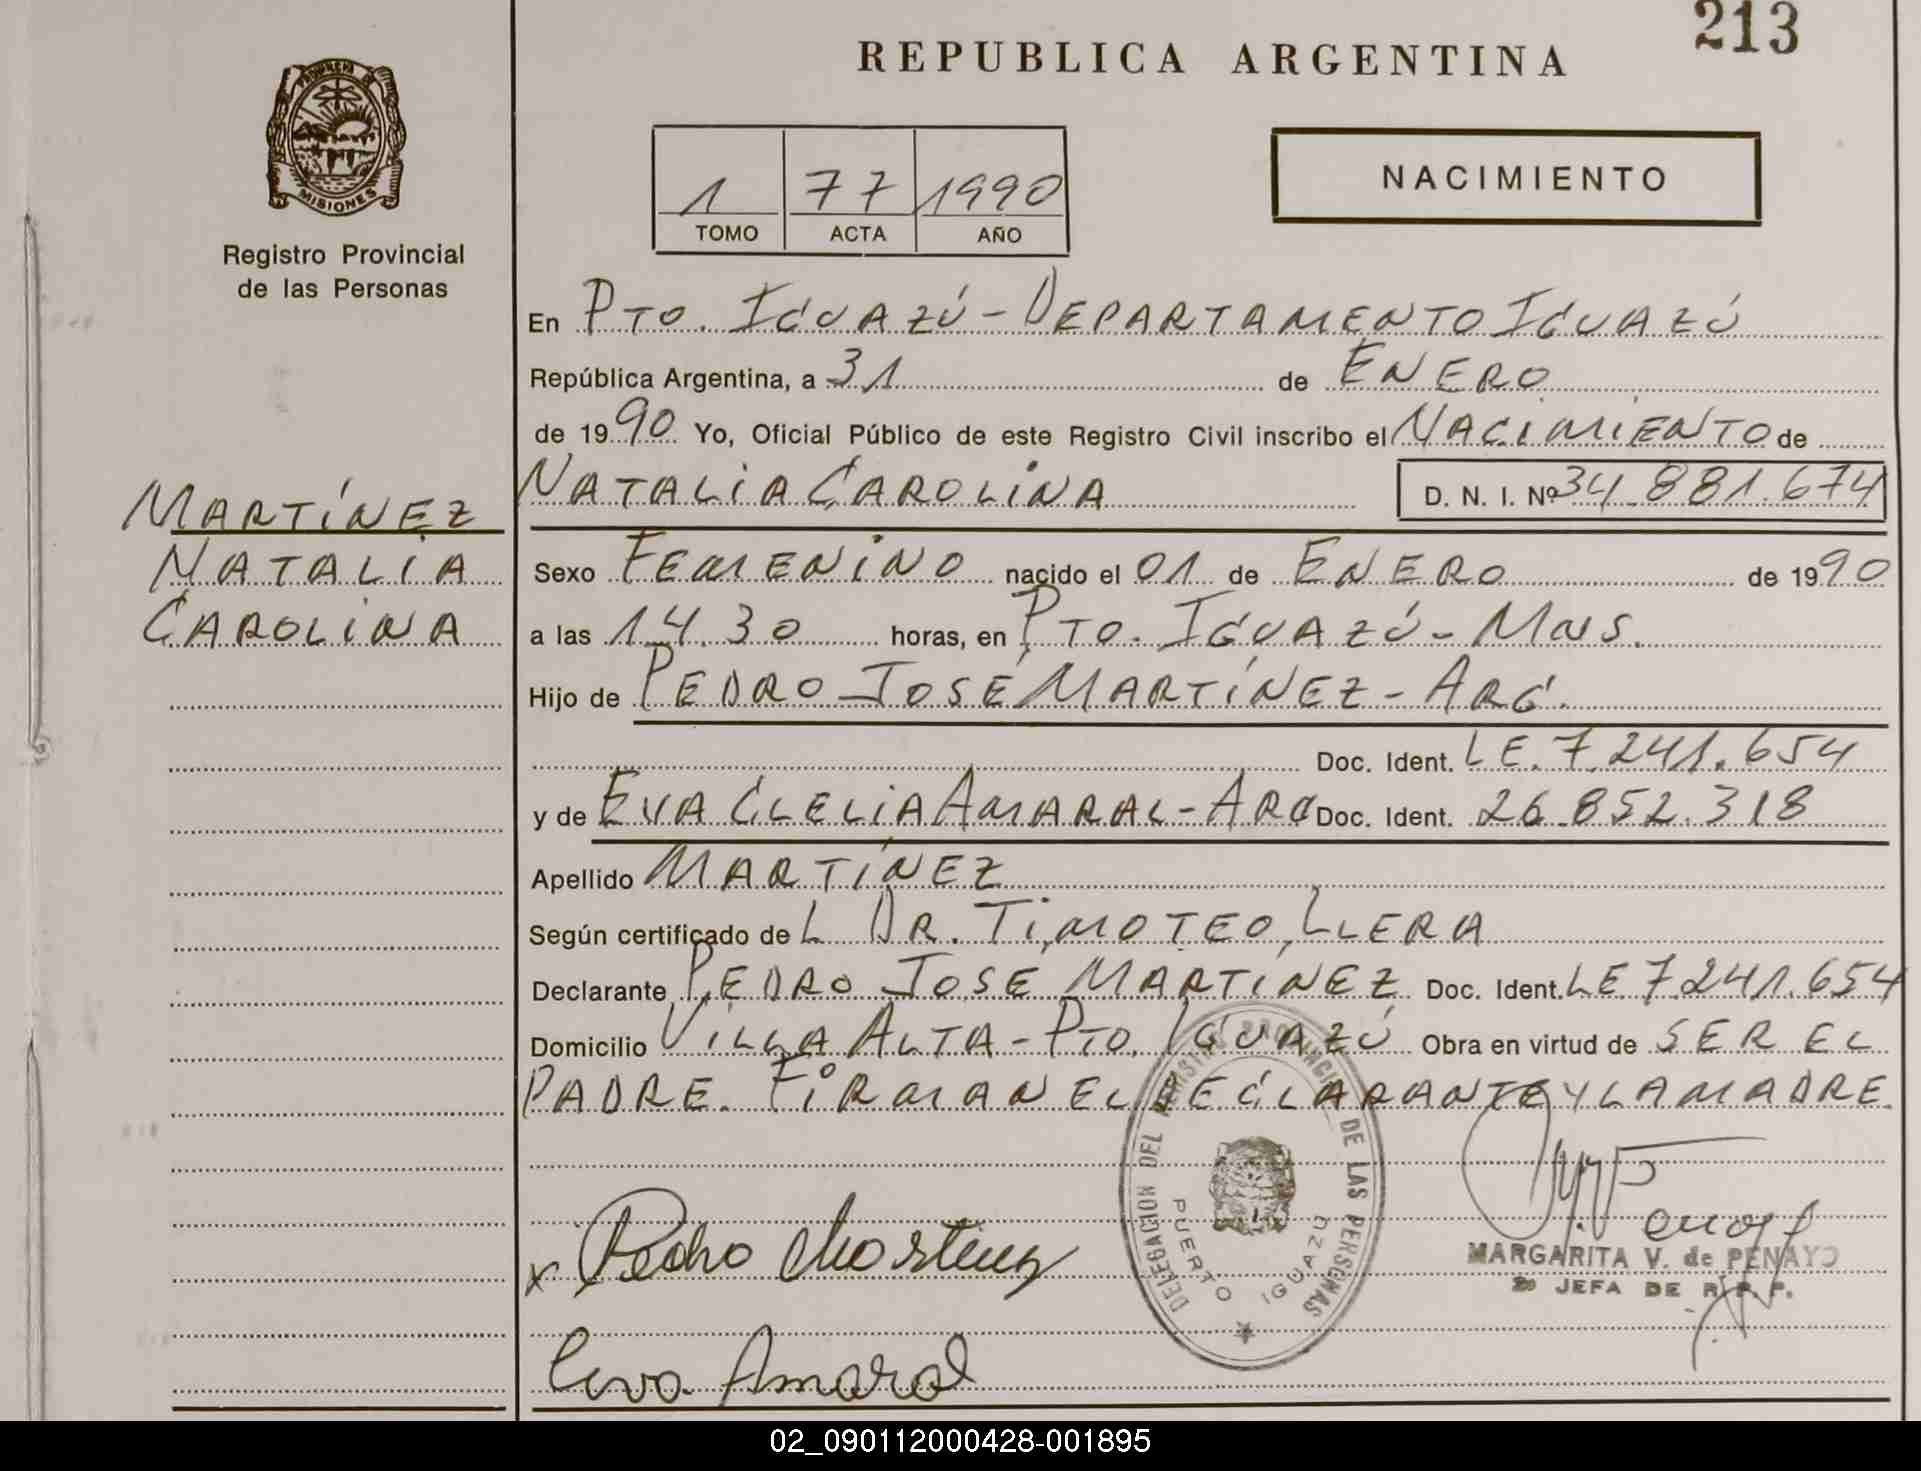 213
REPUBLICA ARGENTINA
PROVINCIA DE
MISIONES
Registro Provincial
de las Personas
1 77 1990
TOMO ACTA AÑO
NACIMIENTO
En PTO. IGUAZÚ - DEPARTAMENTO IGUAZÚ
República Argentina, a 31 de ENERO
de 1990 Yo, Oficial Público de este Registro Civil inscribo el NACIMIENTO de
NATALIA CAROLINA D. N. I. Nº 34.881.674
MARTÍNEZ
NATALIA
CAROLINA
Sexo FEMENINO nacido el 01 de ENERO de 1990
a las 14.30 horas, en PTO. IGUAZÚ - MNS.
Hijo de PEDRO JOSÉ MARTÍNEZ - ARG.
Doc. Ident. LE. 7.241.654
y de EVA CLELIA AMARAL - ARG Doc. Ident. 26.852.318
Apellido MARTÍNEZ
Según certificado de L DR. TIMOTEO LLERA
Declarante PEDRO JOSÉ MARTÍNEZ Doc. Ident. LE 7.241.654
Domicilio VILLA ALTA - PTO. IGUAZÚ Obra en virtud de SER EL
PADRE. FIRMAN EL DECLARANTE Y LA MADRE.
DELEGACION DEL REGISTRO PROVINCIAL DE LAS PERSONAS
PUERTO IGUAZU
x Pedro Martinez
MARGARITA V. de PENAYO
2º JEFA DE R. P. P.
Eva Amaral
02_090112000428-001895